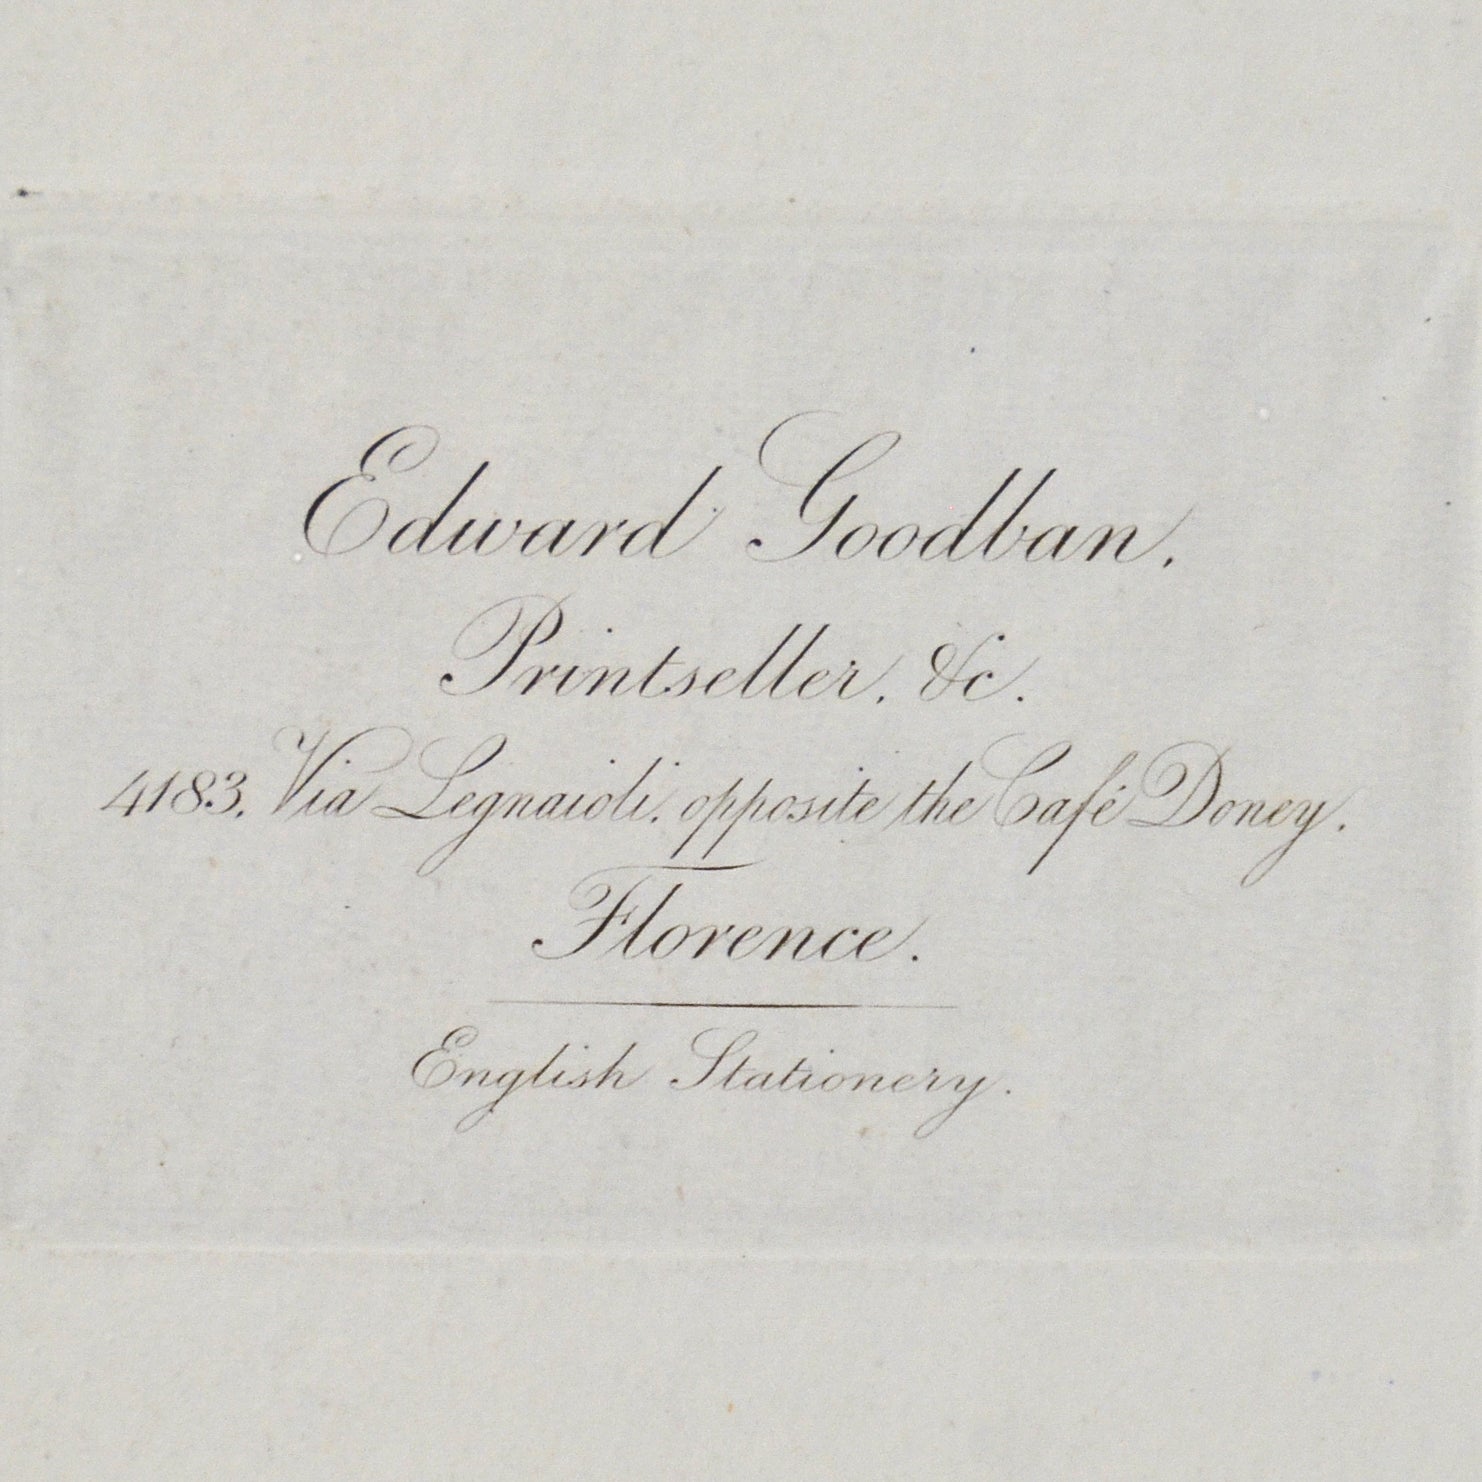 Edward Goodban,
Printseller, &c.
4183. Via Legnaioli, opposite the Café Doney.
Florence.
English Stationery.